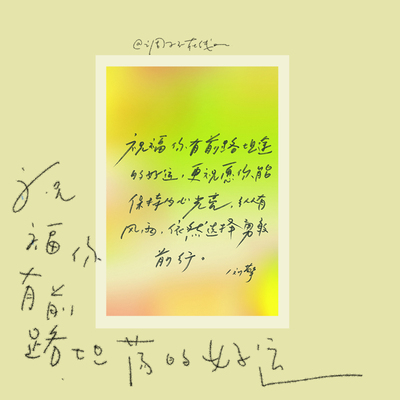 祝福你有前路坦途
的好运，更祝愿你能
保持内心光亮，纵有
风雨，依然选择勇敢
前行。
祝
福你
有前
路坦荡的好运